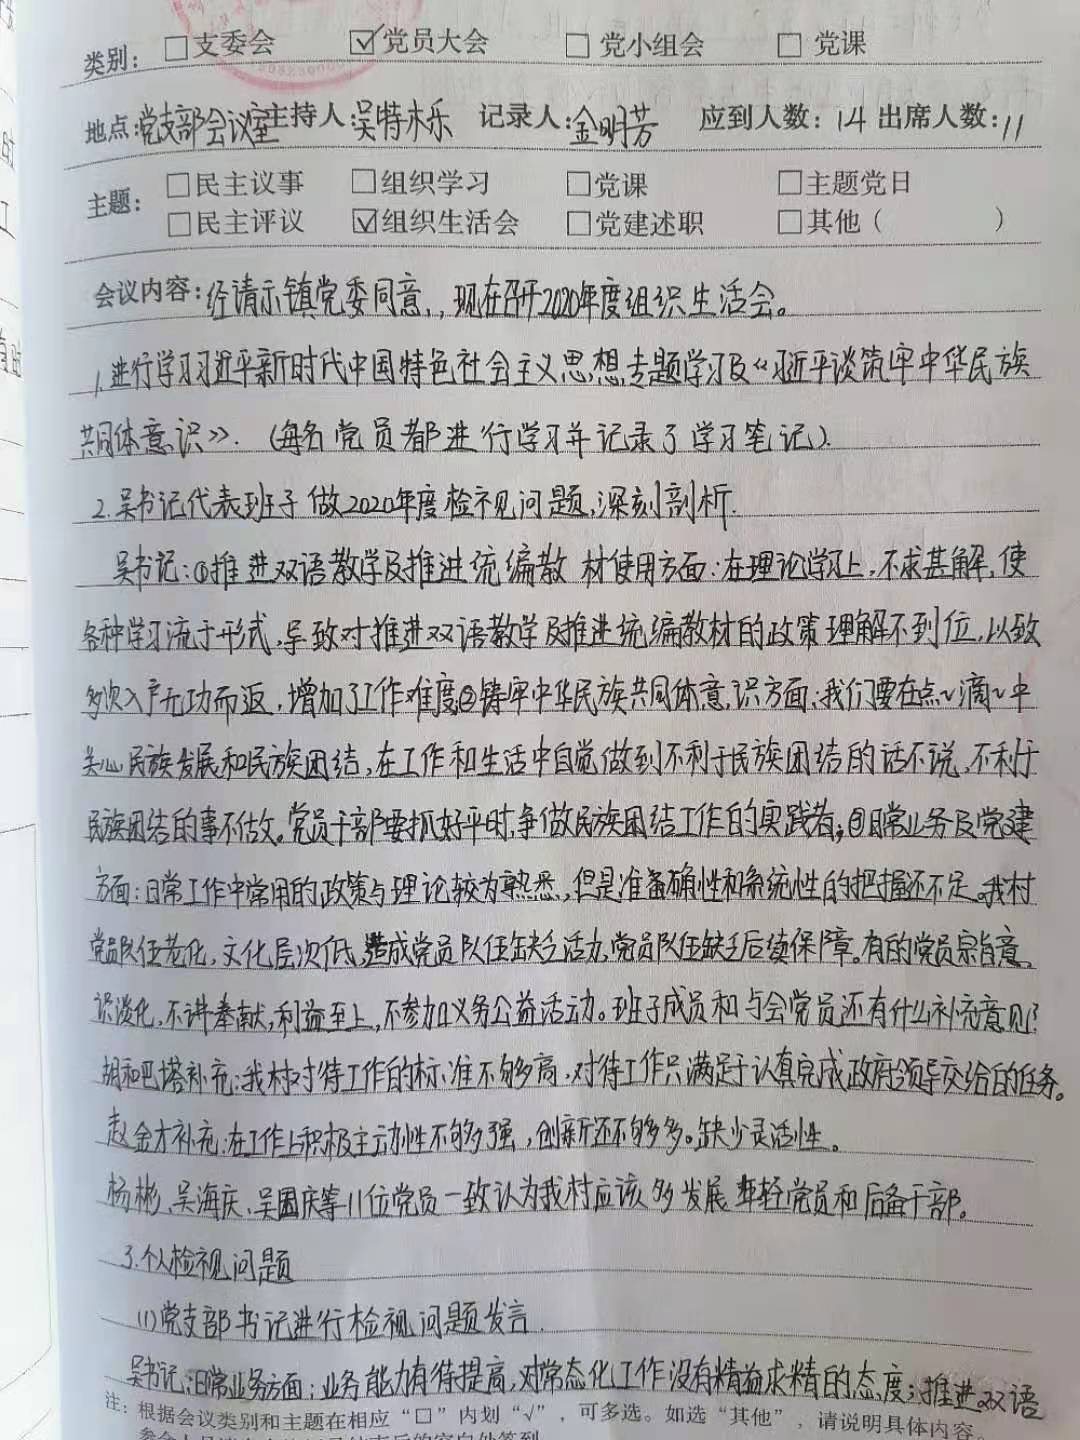 类别: □支委会 ☑党员大会 □党小组会 □党课
地点:党支部会议室主持人:吴特木乐 记录人:金明芳 应到人数: 14 出席人数:11
主题: □民主议事 □组织学习 □党课 □主题党日
□民主评议 ☑组织生活会 □党建述职 □其他( )
会议内容:经请示镇党委同意,,现在召开2020年度组织生活会。
1.进行学习习近平新时代中国特色社会主义思想专题学习及《习近平谈筑牢中华民族
共同体意识》.(每名党员都进行学习并记录了学习笔记).
2.吴书记代表班子做2020年度检视问题,深刻剖析.
吴书记:①推进双语教学及推进统编教材使用方面:在理论学习上,不求甚解,使
各种学习流于形式,导致对推进双语教学及推进统编教材的政策理解不到位,以致
多次入户无功而返,增加了工作难度②铸牢中华民族共同体意识方面:我们要在点~滴~中
关心民族发展和民族团结,在工作和生活中自觉做到不利于民族团结的话不说,不利于
民族团结的事不做。党员干部要抓好平时,争做民族团结工作的实践者;③日常业务及党建
方面:日常工作中常用的政策与理论较为熟悉,但是准备确性和系统性的把握还不足。我村
党员队伍老化,文化层次低,造成党员队伍缺乏活力,党员队伍缺乏后续保障。有的党员宗旨意
识淡化,不讲奉献,利益至上,不参加义务公益活动。班子成员和与会党员还有什么补充意见?
胡和巴塔补充:我村对待工作的标准不够高,对待工作只满足于认真完成政府领导交给的任务。
赵金才补充:在工作上积极主动性不够强,创新还不够多。缺少灵活性。
杨彬、吴海庆、吴国庆等11位党员一致认为我村应该多发展年轻党员和后备干部。
3.个人检视问题
(1)党支部书记进行检视问题发言.
吴书记:日常业务方面:业务能力有待提高,对常态化工作没有精益求精的态度;推进双语
注: 根据会议类别和主题在相应“□”内划“√”,可多选。如选“其他”,请说明具体内容。